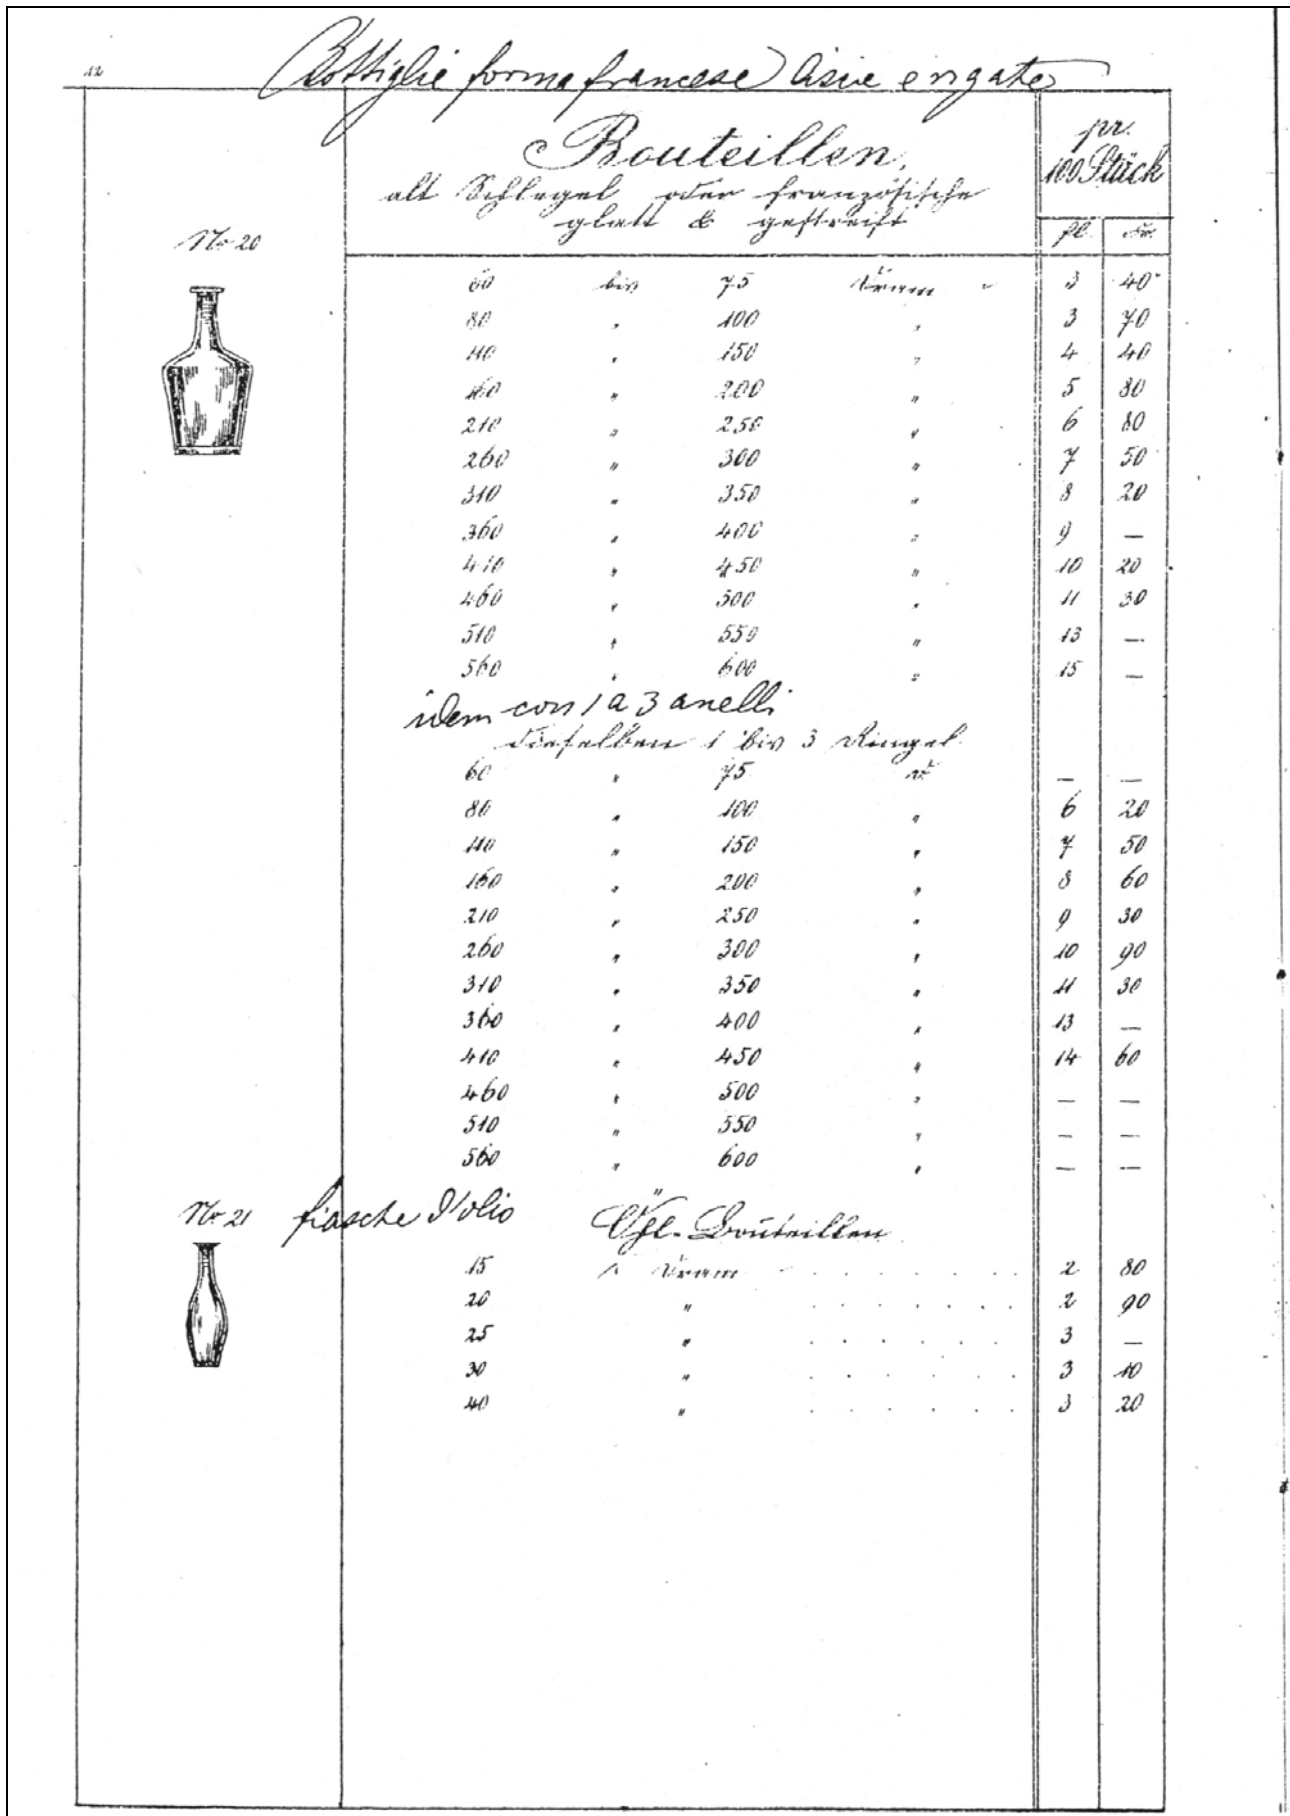 12
Bottiglie forma francese lisie e rigate
Bouteillen,
alt Schlegel oder französische
glatt & gestreift
pr.
100 Stück
fl. Kr.
No 20
60 bis 75 Gram " 3 40
80 " 100 " 3 70
110 " 150 " 4 40
160 " 200 " 5 80
210 " 250 " 6 80
260 " 300 " 7 50
310 " 350 " 8 20
360 " 400 " 9 —
410 " 450 " 10 20
460 " 500 " 11 30
510 " 550 " 13 —
560 " 600 " 15 —
idem con 1 a 3 anelli
dieselben 1 bis 3 Ringel
60 " 75 — —
80 " 100 " 6 20
110 " 150 " 7 50
160 " 200 " 8 60
210 " 250 " 9 30
260 " 300 " 10 90
310 " 350 " 11 30
360 " 400 " 13 —
410 " 450 " 14 60
460 " 500 " — —
510 " 550 " — —
560 " 600 " — —
No 21 fiasche d'olio Öhl-Bouteillen
15 Gram . . . . . . . 2 80
20 " . . . . . . . 2 90
25 " . . . . . . . 3 —
30 " . . . . . . . 3 10
40 " . . . . . . . 3 20